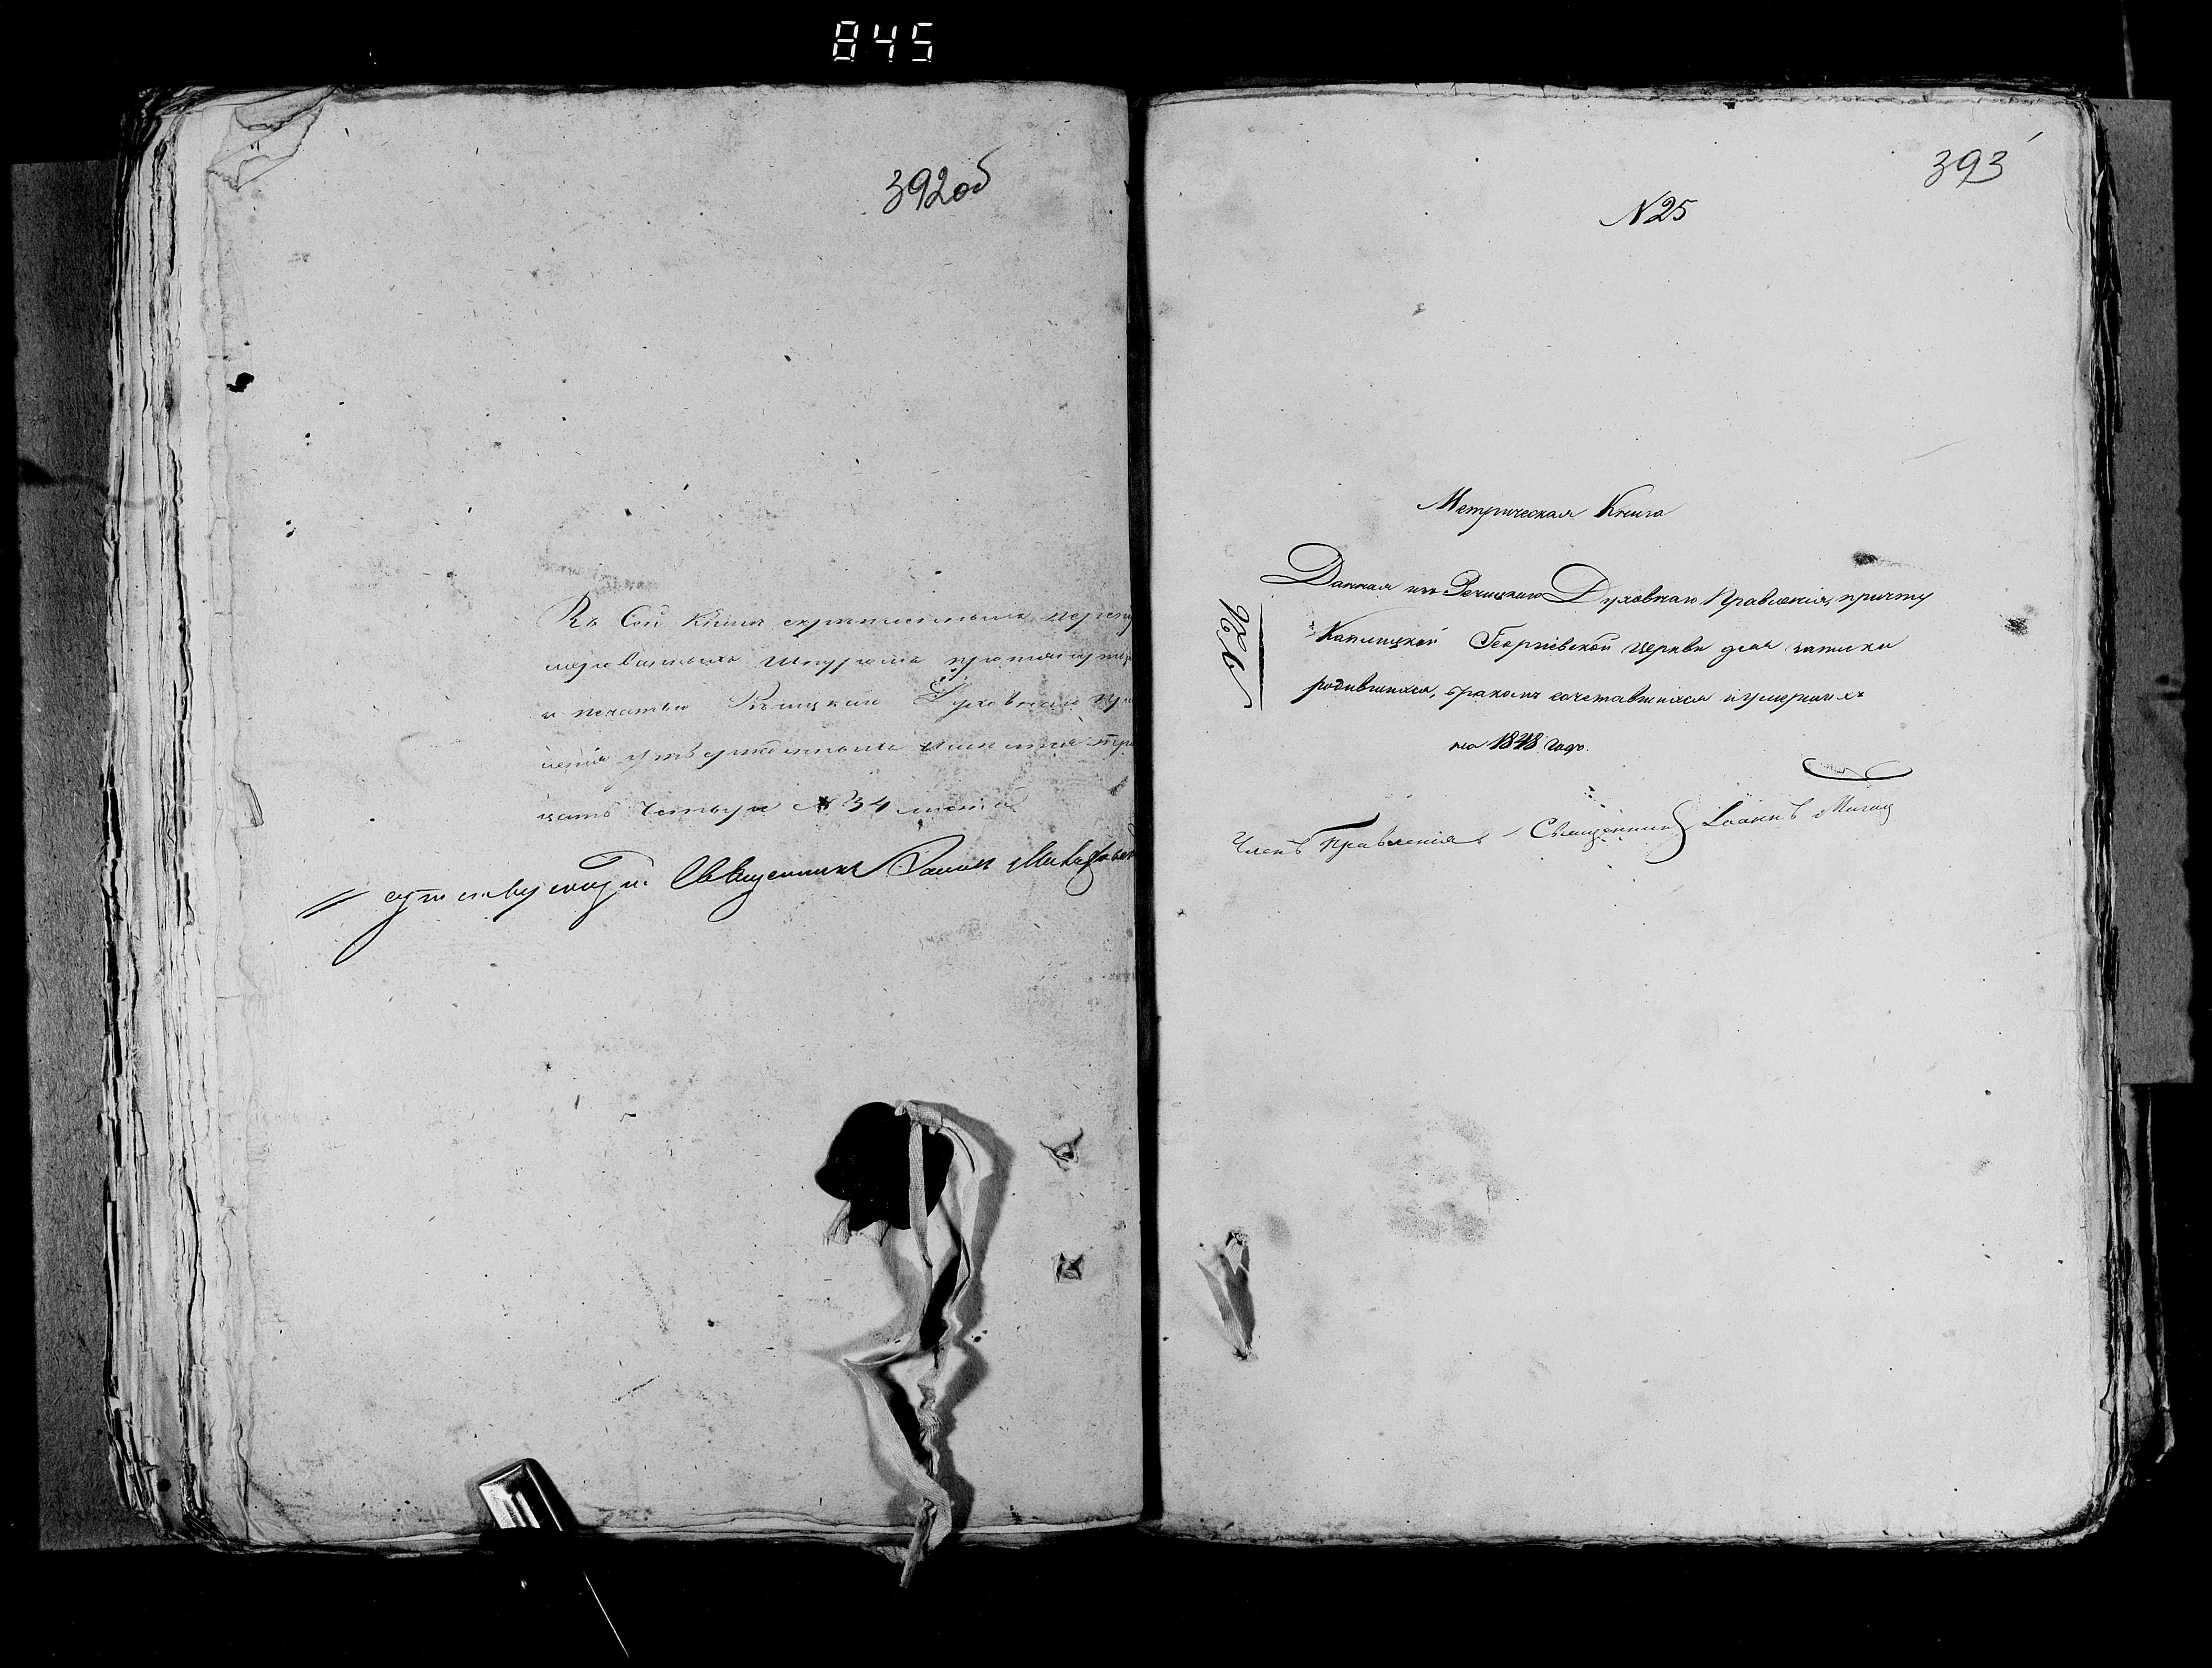 845
392об
Въ Сей Книгѣ скрѣпленныхъ перену
мерованныхъ Шнуромъ протянутыхъ
и печатью Рѣчицкаго Духовнаго Пра
вленія утвержденныхъ тр
цать Четыре № 34 листа
Священникъ
393
N 25
Метрическая Книга
Данная изъ Речицкаго Духовнаго Правленія, причту
Каплицкой Георгіевской церкви для записки
родившихся, бракомъ сочетавшихся и умершихъ
на 1848 годъ.
Членъ Правленія Священникъ Іоаннъ
N 26